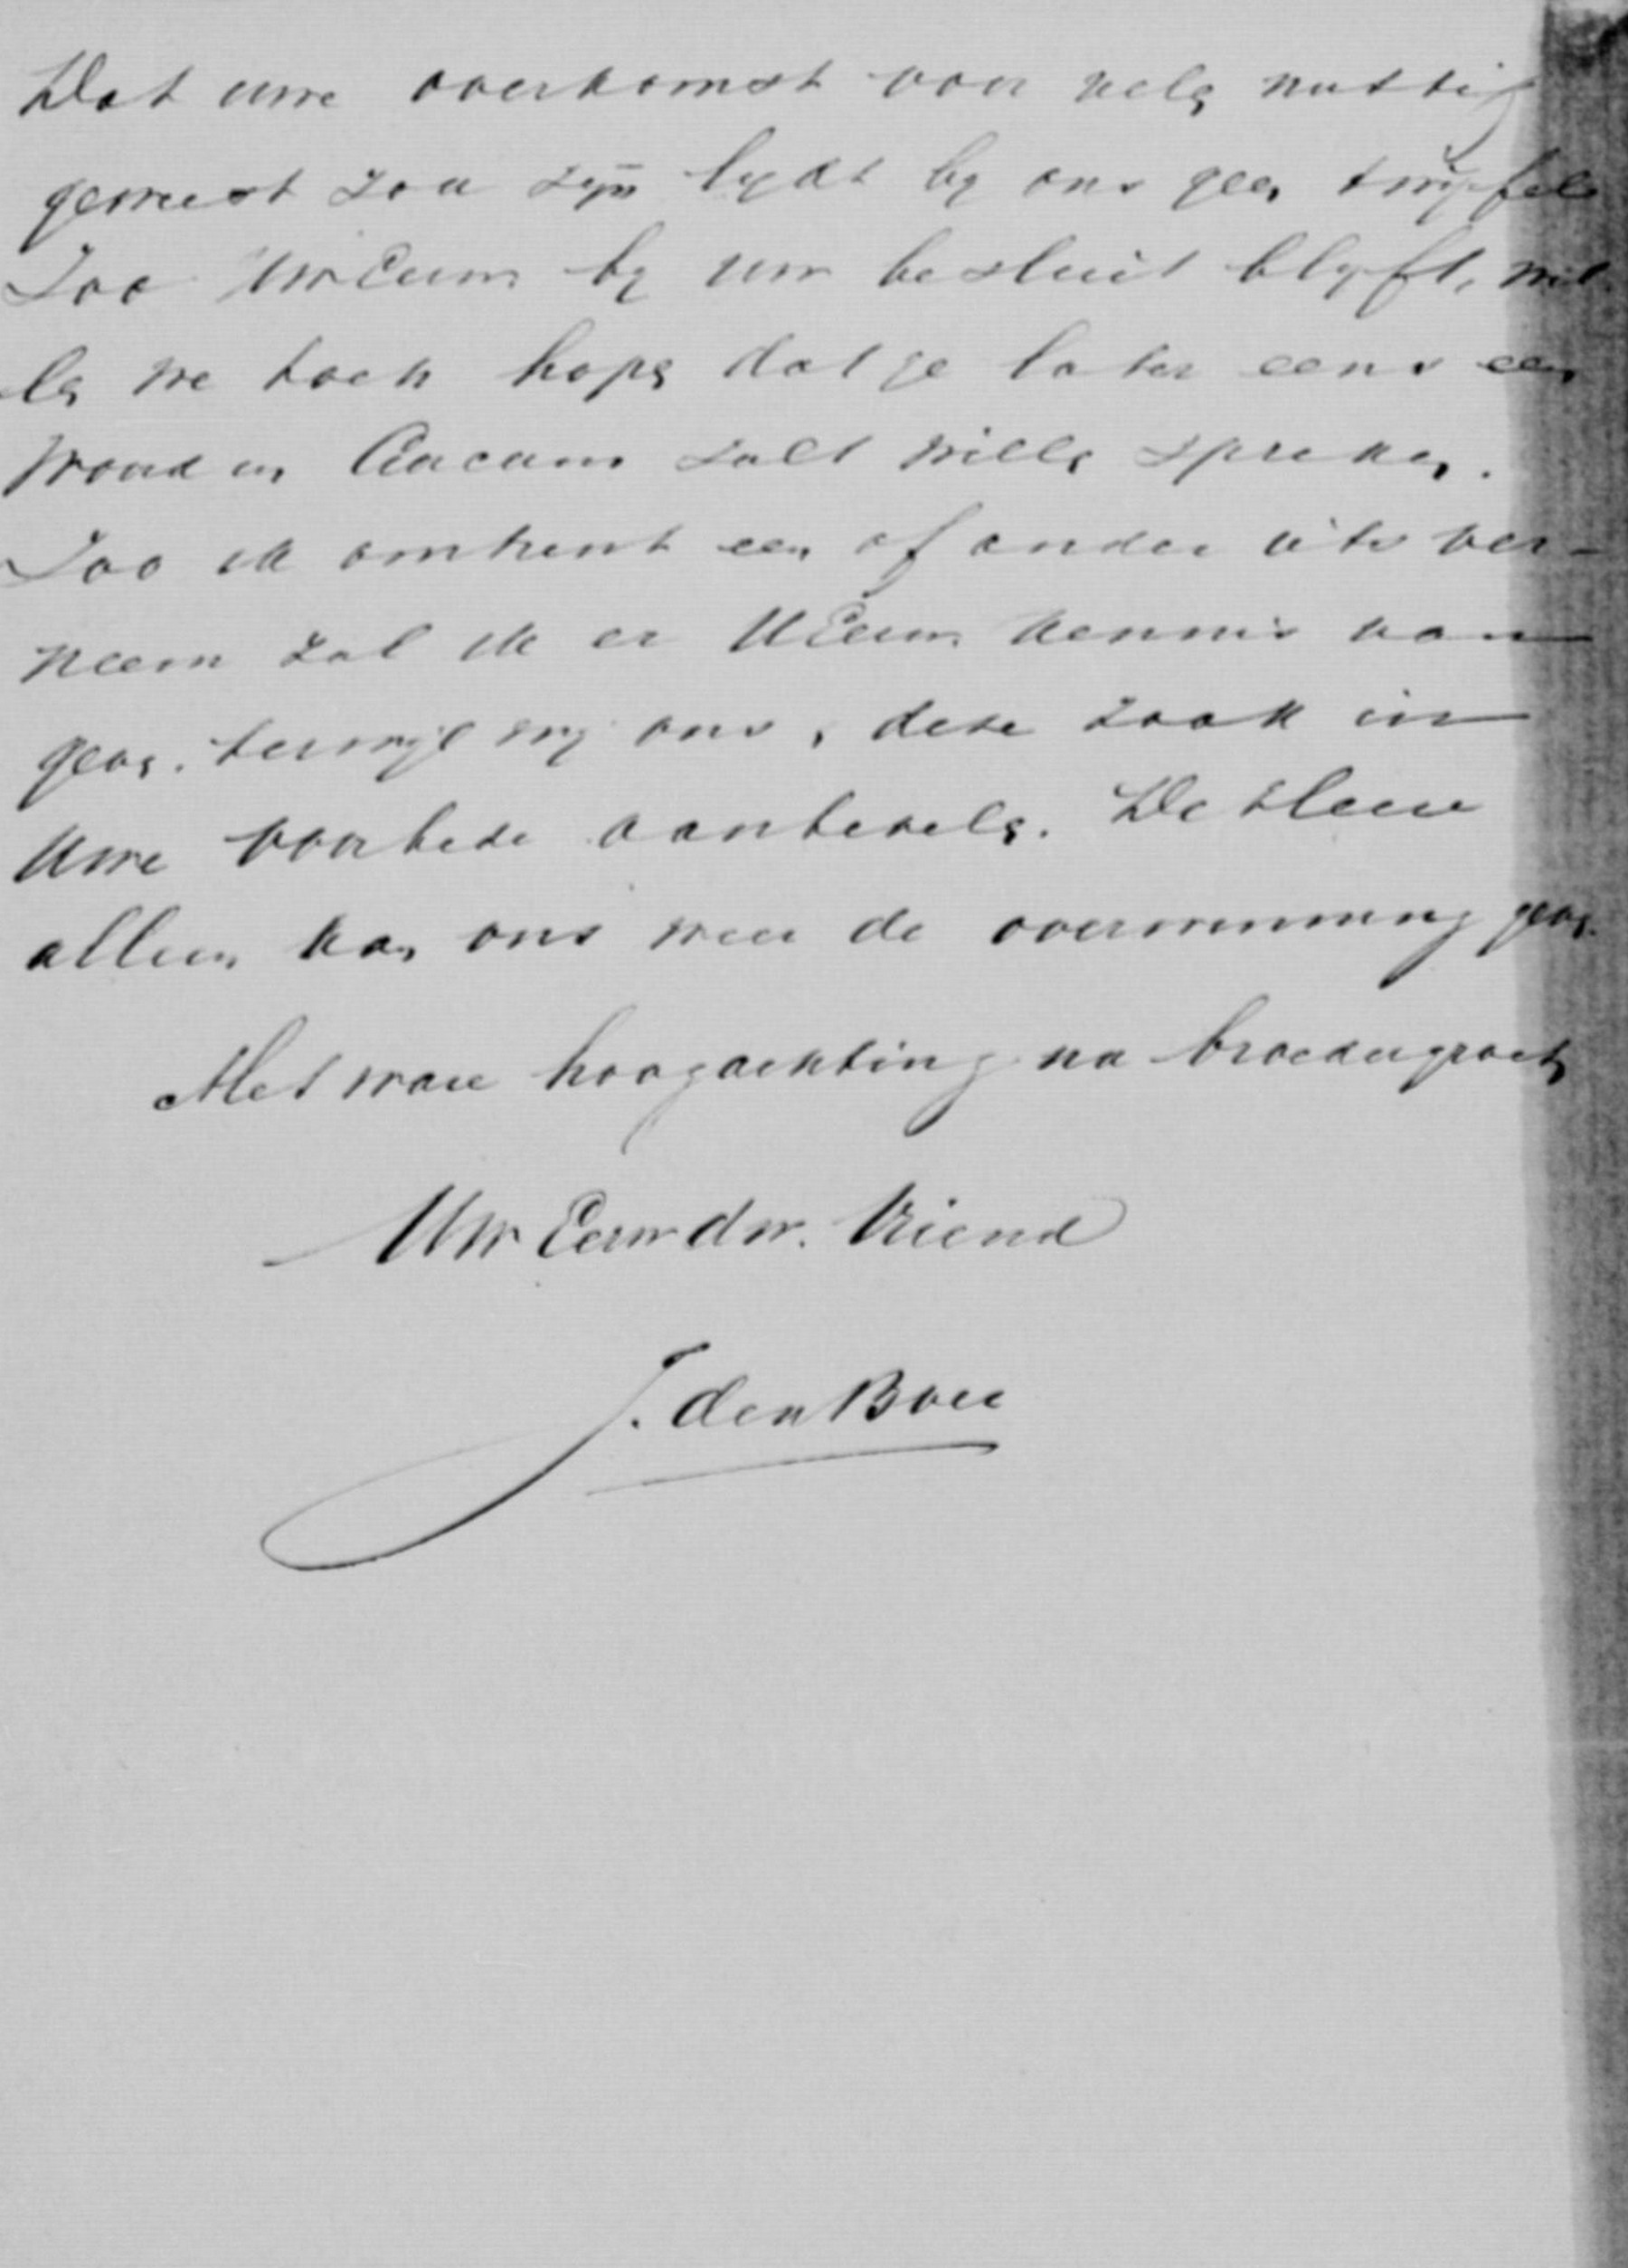 Dat uwe overkomst voor velen nuttig
geweest zou zijn lydt by ons geen twijfel
Zoo UwEerw. by uw besluit blyft, wil-
len we toch hopen dat je later eens een
woord in zult willen spreken.
Zoo ik omtrent een of ander iets ver-
neem zal ik er UEerw. kennis van
geven. terwijl wij ons, deze zaak in
Uwe voorbede aanbevelen. De Heere
alleen kan ons weer de overwinning geven.
Met ware hoogachting na broedergroeten
Uw Eerw dw. Vriend
J. den Boer